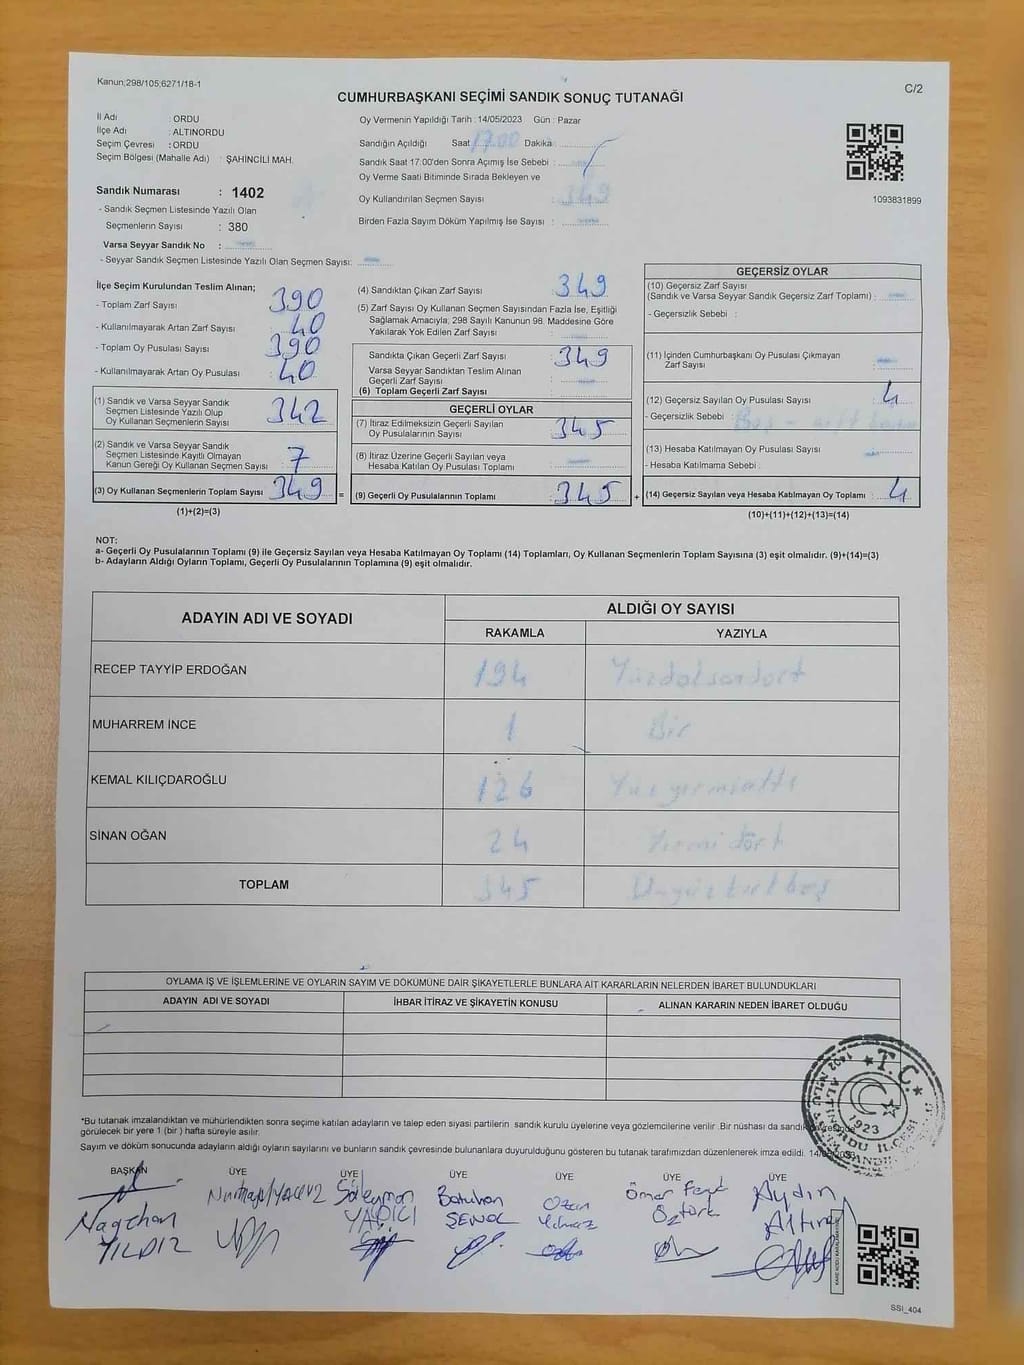 Kanun;298/105;6271/18-1
C/2
CUMHURBAŞKANI SEÇİMİ SANDIK SONUÇ TUTANAĞI
İl Adı : ORDU
İlçe Adı : ALTINORDU
Seçim Çevresi : ORDU
Seçim Bölgesi (Mahalle Adı) : ŞAHİNCİLİ MAH.
Sandık Numarası : 1402
- Sandık Seçmen Listesinde Yazılı Olan
Seçmenlerin Sayısı : 380
Varsa Seyyar Sandık No :
- Seyyar Sandık Seçmen Listesinde Yazılı Olan Seçmen Sayısı:
Oy Vermenin Yapıldığı Tarih : 14/05/2023 Gün : Pazar
Sandığın Açıldığı Saat 17.00 Dakika
Sandık Saat 17:00'den Sonra Açımış İse Sebebi :
Oy Verme Saati Bitiminde Sırada Bekleyen ve
Oy Kullandırılan Seçmen Sayısı : 349
Birden Fazla Sayım Döküm Yapılmış İse Sayısı :
1093831899
İlçe Seçim Kurulundan Teslim Alınan;
- Toplam Zarf Sayısı : 390
- Kullanılmayarak Artan Zarf Sayısı : 40
- Toplam Oy Pusulası Sayısı : 390
- Kullanılmayarak Artan Oy Pusulası : 40
(1) Sandık ve Varsa Seyyar Sandık
Seçmen Listesinde Yazılı Olup
Oy Kullanan Seçmenlerin Sayısı : 342
(2) Sandık ve Varsa Seyyar Sandık
Seçmen Listesinde Kayıtlı Olmayan
Kanun Gereği Oy Kullanan Seçmen Sayısı : 7
(3) Oy Kullanan Seçmenlerin Toplam Sayısı : 349 =
(1)+(2)=(3)
(4) Sandıktan Çıkan Zarf Sayısı : 349
(5) Zarf Sayısı Oy Kullanan Seçmen Sayısından Fazla İse, Eşitliği
Sağlamak Amacıyla; 298 Sayılı Kanunun 98. Maddesine Göre
Yakılarak Yok Edilen Zarf Sayısı :
Sandıkta Çıkan Geçerli Zarf Sayısı : 349
Varsa Seyyar Sandıktan Teslim Alınan
Geçerli Zarf Sayısı :
(6) Toplam Geçerli Zarf Sayısı :
GEÇERLİ OYLAR
(7) İtiraz Edilmeksizin Geçerli Sayılan
Oy Pusulalarının Sayısı : 345
(8) İtiraz Üzerine Geçerli Sayılan veya
Hesaba Katılan Oy Pusulası Toplamı :
(9) Geçerli Oy Pusulalarının Toplamı : 345 +
GEÇERSİZ OYLAR
(10) Geçersiz Zarf Sayısı
(Sandık ve Varsa Seyyar Sandık Geçersiz Zarf Toplamı) :
- Geçersizlik Sebebi :
(11) İçinden Cumhurbaşkanı Oy Pusulası Çıkmayan
Zarf Sayısı :
(12) Geçersiz Sayılan Oy Pusulası Sayısı : 4
- Geçersizlik Sebebi : Boş -
(13) Hesaba Katılmayan Oy Pusulası Sayısı :
- Hesaba Katılmama Sebebi :
(14) Geçersiz Sayılan veya Hesaba Katılmayan Oy Toplamı : 4
(10)+(11)+(12)+(13)=(14)
NOT:
a- Geçerli Oy Pusulalarının Toplamı (9) ile Geçersiz Sayılan veya Hesaba Katılmayan Oy Toplamı (14) Toplamları, Oy Kullanan Seçmenlerin Toplam Sayısına (3) eşit olmalıdır. (9)+(14)=(3)
b- Adayların Aldığı Oyların Toplamı, Geçerli Oy Pusulalarının Toplamına (9) eşit olmalıdır.
ADAYIN ADI VE SOYADI ALDIĞI OY SAYISI
RAKAMLA YAZIYLA
RECEP TAYYİP ERDOĞAN 194 Yüzdoksandört
MUHARREM İNCE 1 Bir
KEMAL KILIÇDAROĞLU 126 Yüzyirmialtı
SİNAN OĞAN 24 Yirmi dört
TOPLAM 345 Üçyüzkırkbeş
OYLAMA İŞ VE İŞLEMLERİNE VE OYLARIN SAYIM VE DÖKÜMÜNE DAİR ŞİKAYETLERLE BUNLARA AİT KARARLARIN NELERDEN İBARET BULUNDUKLARI
ADAYIN ADI VE SOYADI İHBAR İTİRAZ VE ŞİKAYETİN KONUSU ALINAN KARARIN NEDEN İBARET OLDUĞU
*Bu tutanak imzalandıktan ve mühürlendikten sonra seçime katılan adayların ve talep eden siyasi partilerin sandık kurulu üyelerine veya gözlemcilerine verilir .Bir nüshası da sandık çevresinde
görülecek bir yere 1 (bir ) hafta süreyle asılır.
Sayım ve döküm sonucunda adayların aldığı oyların sayılarını ve bunların sandık çevresinde bulunanlara duyurulduğunu gösteren bu tutanak tarafımızdan düzenlenerek imza edildi. 14/05/2023
T.C.
1923
BAŞKAN ÜYE ÜYE ÜYE ÜYE ÜYE ÜYE
Nagehan YILDIZ
Süleyman YAPICI
Batuhan ŞENOL
Ozan Yılmaz
Ömer Faruk Öztürk
Aydın Altın
SSI_404